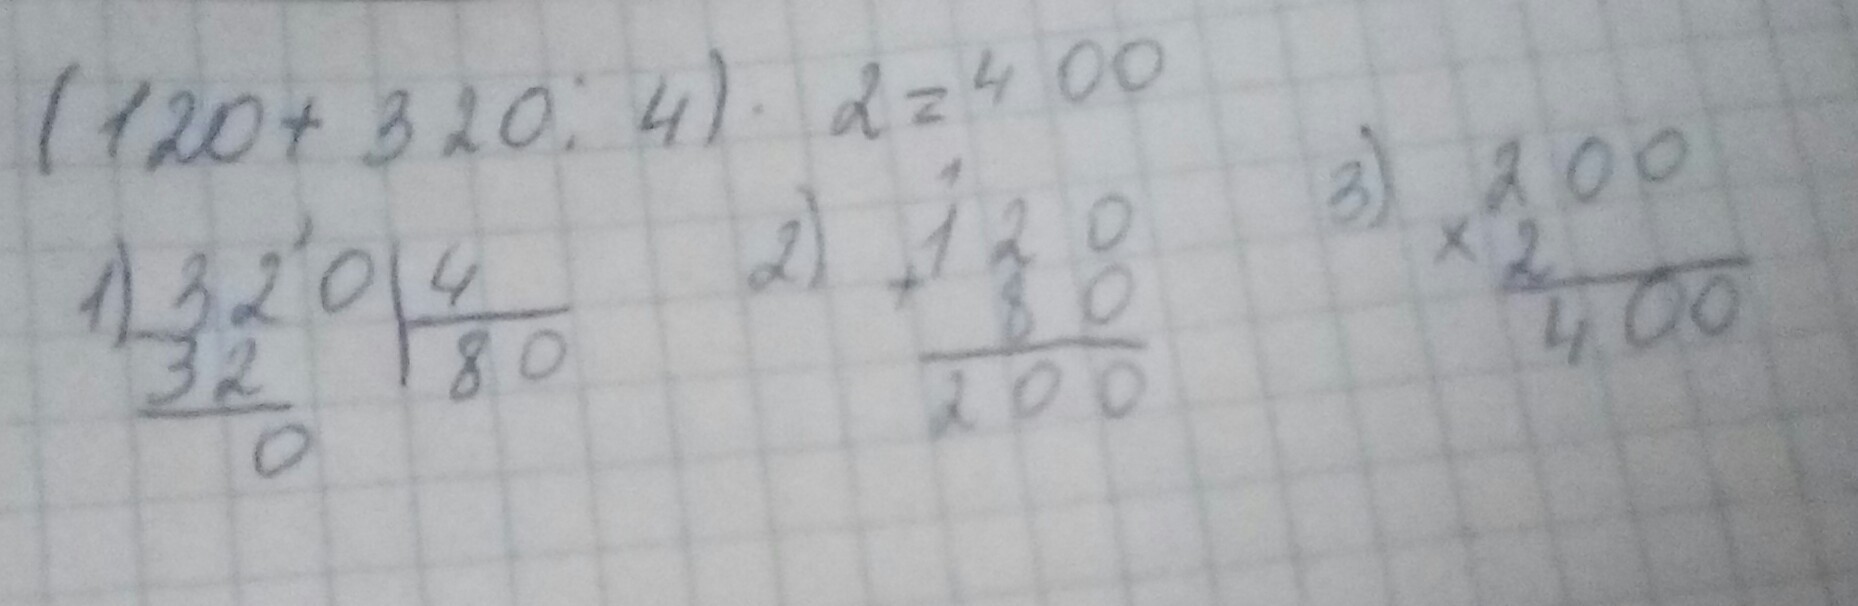 (120 + 320 : 4) · 2 = 400
1) 320 | 4
32 | 80
0
2) 1
+ 120
80
200
3) × 200
2
400